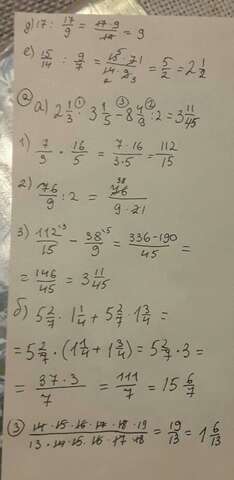 д) 17 : 17/9 = 17·9/17 = 9
е) 15/14 : 9/7 = 15·7/14·9 = 5/2 = 2 1/2
② а) 2 1/3 · 3 1/5 - 8 4/9 : 2 = 3 11/45
1) 7/3 · 16/5 = 7·16/3·5 = 112/15
2) 76/9 : 2 = 76/9·2
3) 112/15 - 38/9 = 336-190/45 =
= 146/45 = 3 11/45
б) 5 2/7 · 1 1/4 + 5 2/7 · 1 3/4 =
= 5 2/7 · (1 1/4 + 1 3/4) = 5 2/7 · 3 =
= 37·3/7 = 111/7 = 15 6/7
③ 14·15·16·17·18·19/13·14·15·16·17·18 = 19/13 = 1 6/13